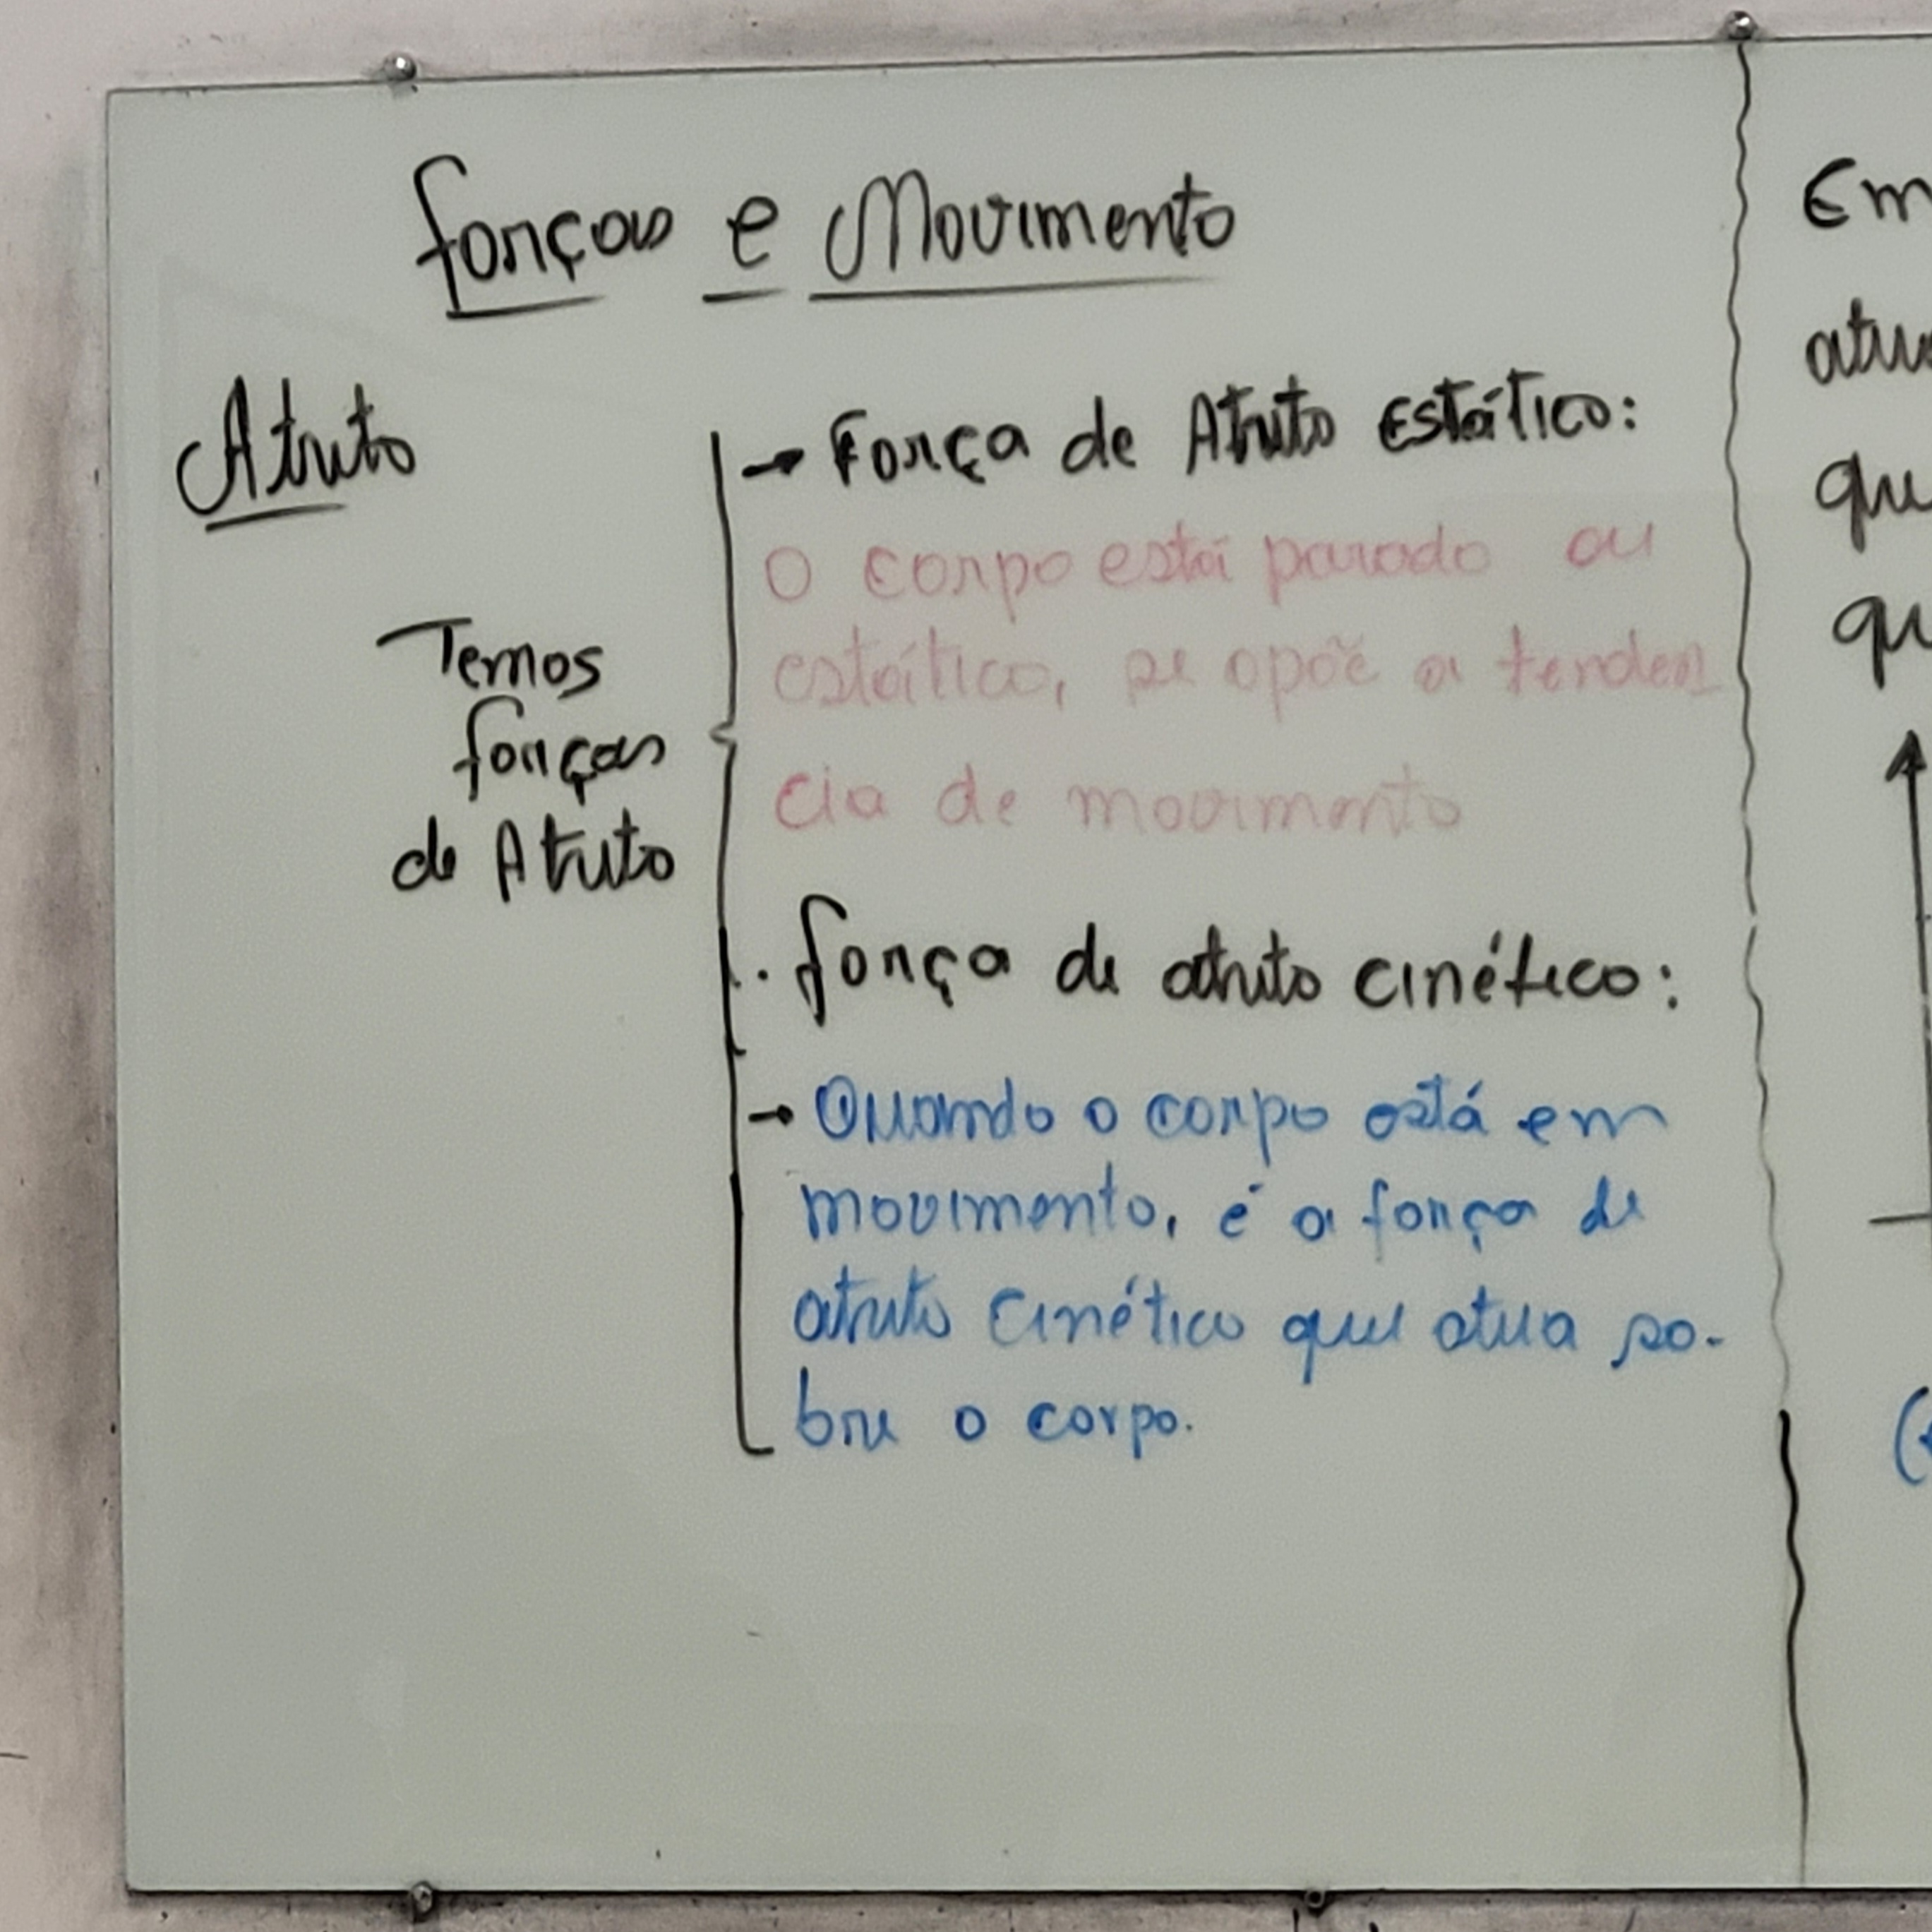 Forças e Movimento
Atrito
Temos
forças
de Atrito
→ Força de Atrito Estático:
O corpo está parado ou
estático, se opõe a tenden
cia de movimento
. força de atrito cinético:
→ Quando o corpo está em
movimento, é a força de
atrito cinético que atua so-
bre o corpo.
Em